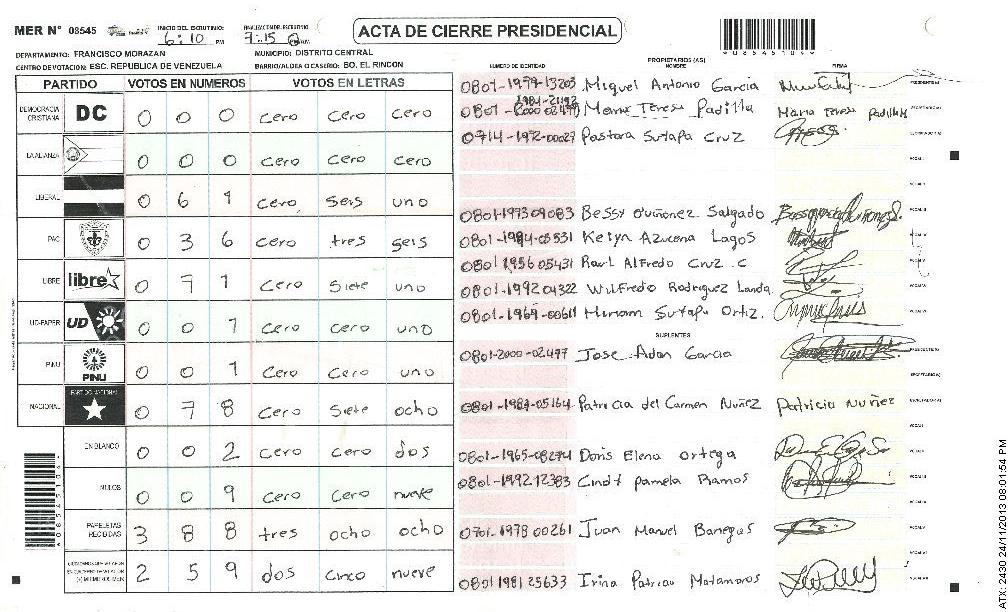 MER N° 08545
INICIO DEL ESCRUTINIO: 6:10 PM
FINALIZACION DEL ESCRUTINIO 7:15 PM
ACTA DE CIERRE PRESIDENCIAL
DEPARTAMENTO: FRANCISCO MORAZAN
MUNICIPIO: DISTRITO CENTRAL
CENTRO DE VOTACION: ESC. REPUBLICA DE VENEZUELA
BARRIO/ALDEA O CASERIO: BO. EL RINCON
PARTIDO VOTOS EN NUMEROS VOTOS EN LETRAS
DEMOCRACIA CRISTIANA DC 0 0 0 cero cero cero
LA ALIANZA 0 0 0 cero cero cero
LIBERAL 0 6 1 cero seis uno
PAC 0 3 6 cero tres seis
LIBRE libre 0 7 1 cero siete uno
UD-FAPER UD 0 0 1 cero cero uno
PINU PINU 0 0 1 cero cero uno
NACIONAL PARTIDO NACIONAL 0 7 8 cero siete ocho
EN BLANCO 0 0 2 cero cero dos
NULOS 0 0 9 cero cero nueve
PAPELETAS RECIBIDAS 3 8 8 tres ocho ocho
2 5 9 dos cinco nueve
PROPIETARIOS (AS)
NUMERO DE IDENTIDAD NOMBRE FIRMA
0801-1979-13203 Miguel Antonio Garcia
Maria Teresa Padilla Maria Teresa Padilla M
0714-1972-00027 Pastora Sutapa Cruz
0801-197309083 Bessy Quiñonez Salgado
0801-1984-03531 Kelyn Azucena Lagos
0801 1956 05431 Raul Alfredo Cruz C
0801-1992 04322 Wilfredo Rodriguez Landa
0801-1969-00611 Miriam Sutapa Ortiz.
SUPLENTES
0801-2000-02477 Jose Adan Garcia
0801-1987-05164 Patricia del Carmen Nuñez Patricia Nuñez
0801-1965-08274 Doris Elena Ortega
0801-1992 12383 Cindy Pamela Ramos
0701-1978 00261 Juan Manuel Banegas
0801 1981 25633 Irina Patricia Matamoros
ATX-2930 24/11/2013 08:01:54 PM